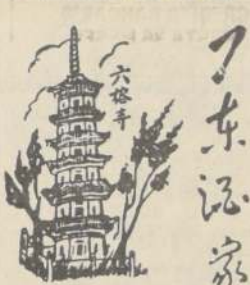 六榕寺
广东语家